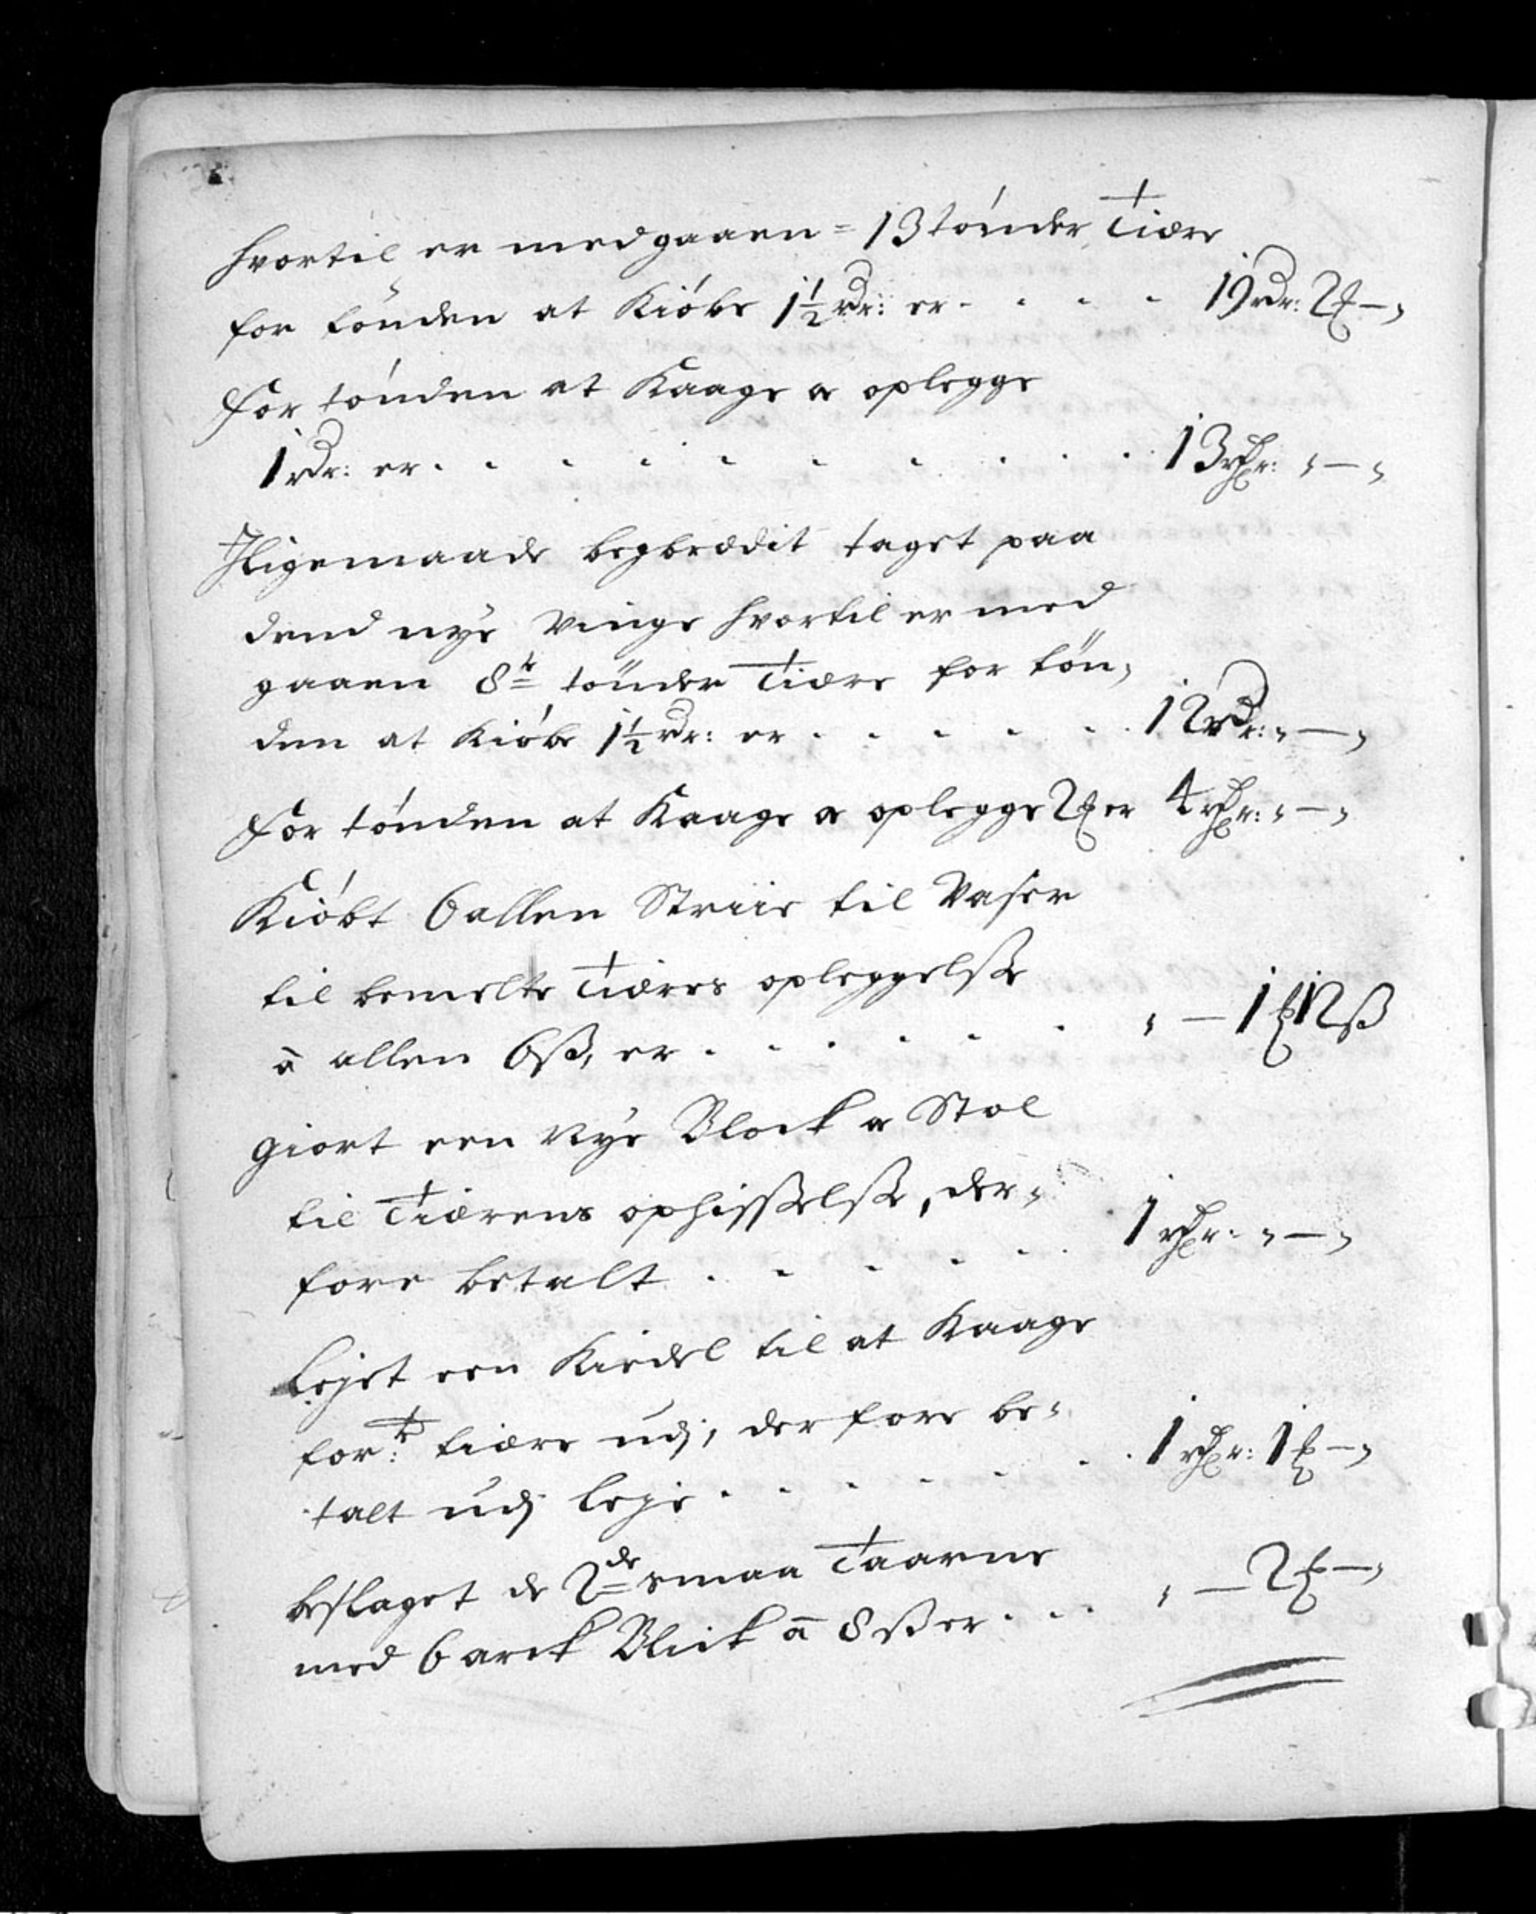 hvortil er medgaaen = 13 tónder Tiære
for tönden at Kióbe 1½ rdr: er - - - - 19 rdr: 2 ₰ — „
For tónden at Kaage & oplegge
1 rdr: er - - - - - - - - - 13 rdr: „ — „
Jligemaade begbrædit taget paa
dend nye Vinge hvortil er med
gaaen 8te tönder Tiære for tön„
den at Kióbe 1½ rdr: er - - - - - 12 rdr: „ — „
For tónden at Kaage & oplegge 2 ₰ er 4 rdr: „ — „
Kióbt 6 allen Striie til Vaser
til bemelte Tiæres opleggelsse
a allen 6 ß, er - - - - - - „ — 1 ₰ 12 ß
giort een Nye Block & Stol
til Tiærens ophisselsse, der„
fore betalt - - - - - 1 rdr: „ — „
lejet een Kiedel til at Kaage
forte: tiære udj, derfore be„
talt udj leje - - - - - - 1 rdr: 1 ₰ — „
beslaget de 2de smaa Taarne
med 6 arck Blick a 8 ß er - - - „ — 2 ₰ — „